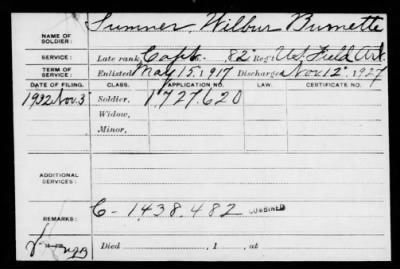 NAME OF SOLDIER: Sumner, Wilbur Burnette
SERVICE: Late rank Capt. 82" Reg't U.S. Field Art.
TERM OF SERVICE: Enlisted May 15, 1917 Discharged Nov 12", 1927
DATE OF FILING. CLASS. APPLICATION NO. LAW. CERTIFICATE NO.
1932 Nov. 3 Soldier, 1,727,620
Widow,
Minor,
ADDITIONAL SERVICES:
REMARKS: C- 1,438,482 COMBINED
Died , 1 , at